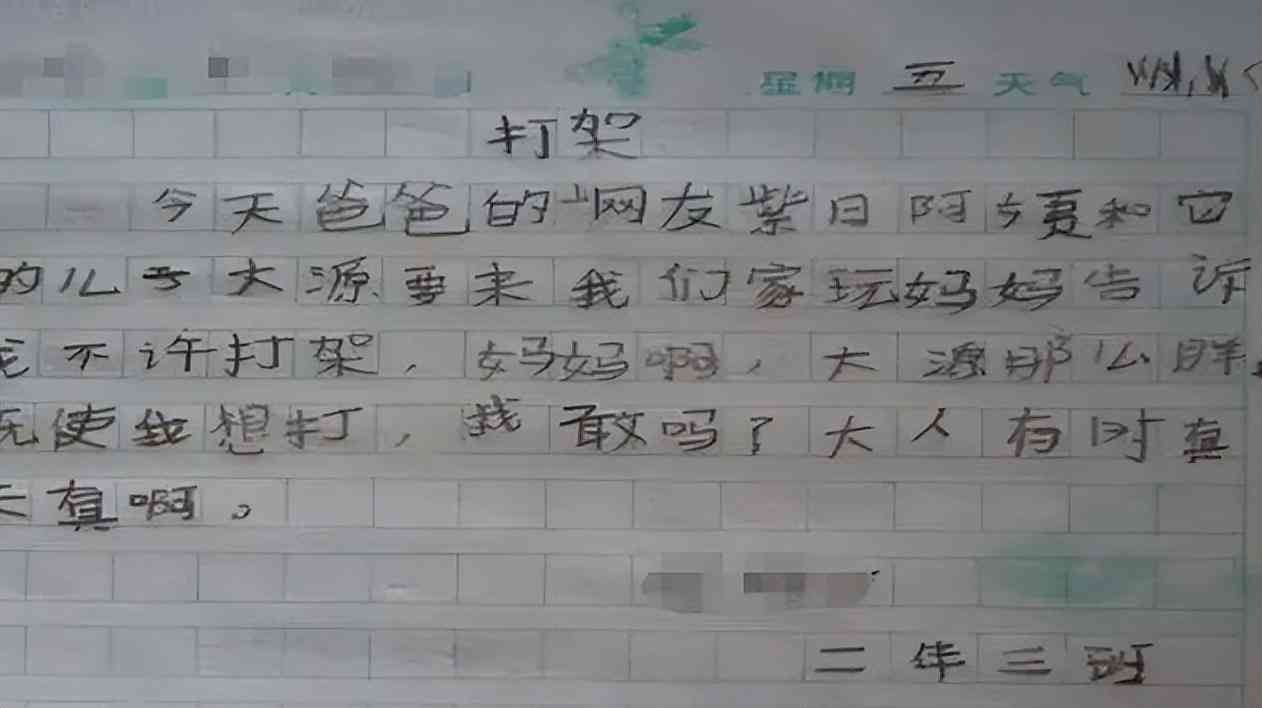 星期 五 天气
打架
今天爸爸的网友紫日阿姨和它
的儿子大源要来我们家玩妈妈告诉
我不许打架,妈妈啊,大源那么胖,
既使我想打,我敢吗?大人有时真
天真啊。
二年三班